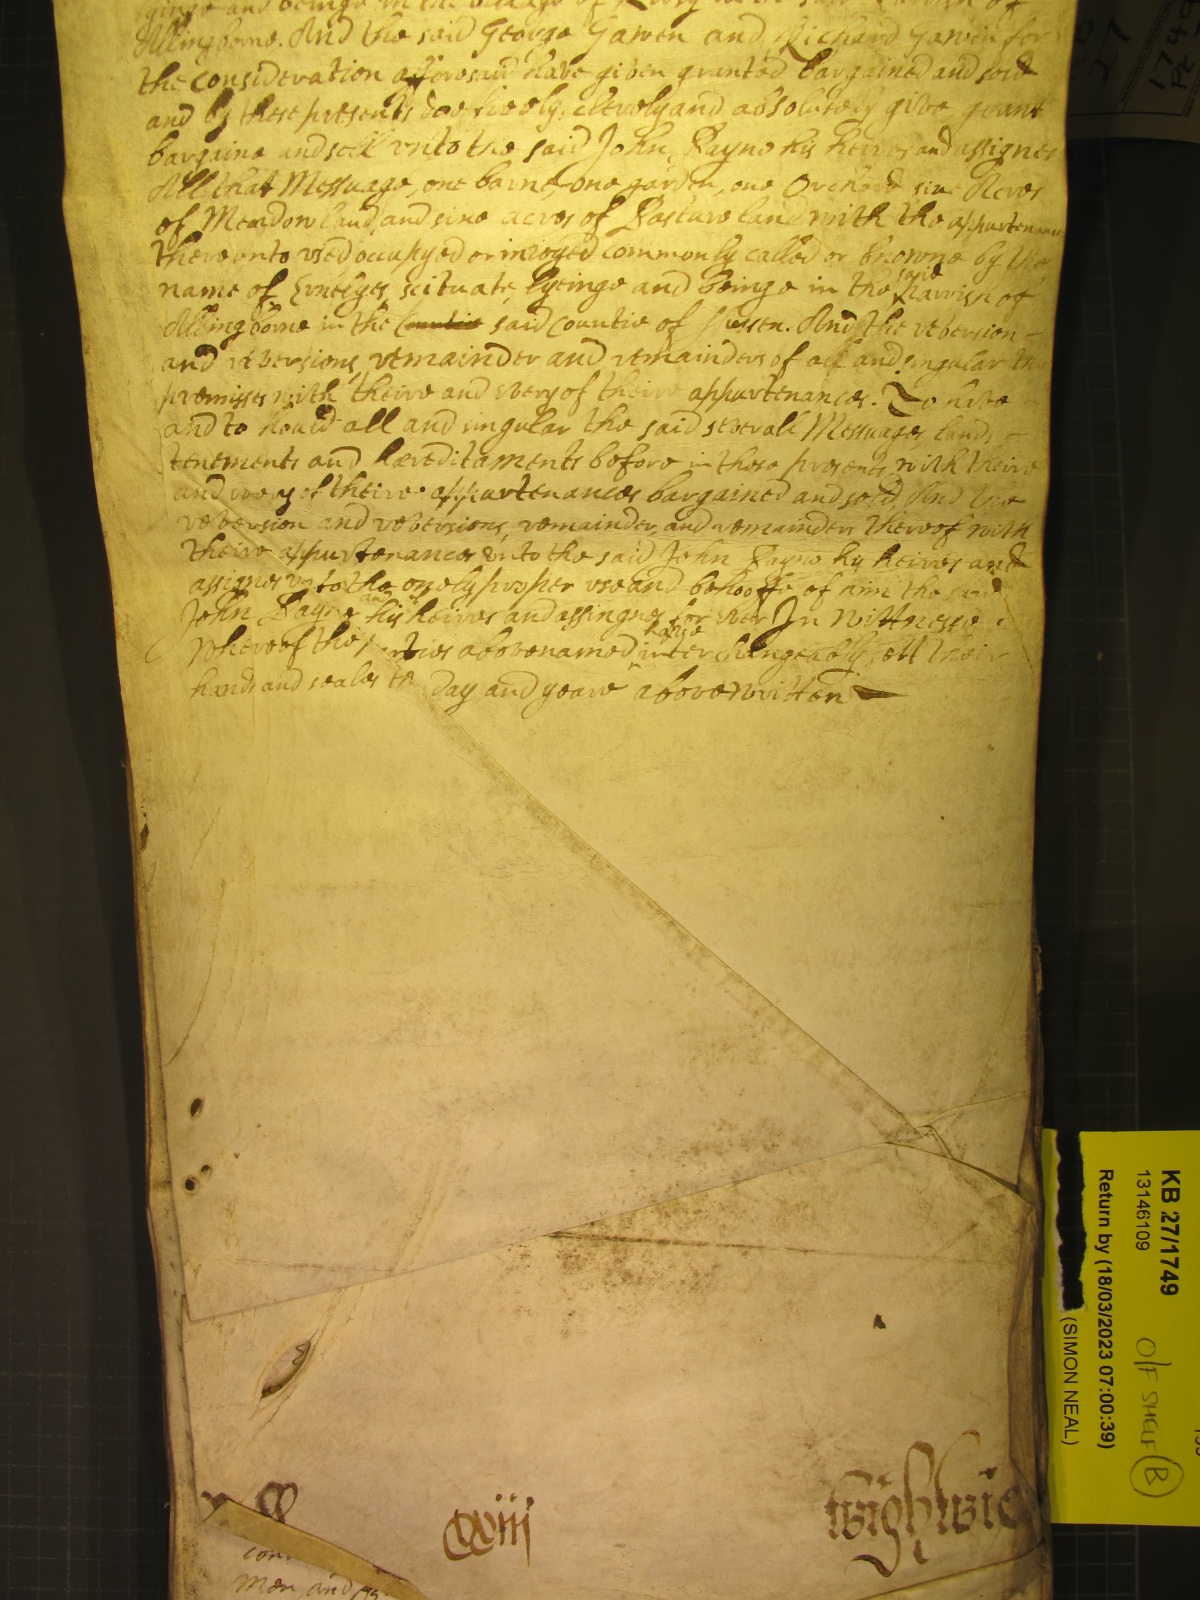 lyinge and beinge in the village of in the said Parish of
Allingborne. And the said George Gawen and Richard Gawen for
the consideration afforesaid have given granted bargained and sold
and by these presents doe freely, clerely and absolutely give grant
bargaine and sell vnto the said John Payne his heires and assignes
All that Messuage, one barne, one garden, one Orchard sixe Acres
of Meadow land, and sixe acres of Pasture land with the appurtenances
therevnto vsed occupyed or inioyed commonly called or knowne by the
name of scituate, lyeinge and beinge in the said Parrish of
Allingborne in the Countie said Countie of Sussex. And the reversion
and reversions, remainder and remainders of all and singular the
premisses with theire and every of theire appurtenances. To have
and to hould all and singular the said severall Messuages, lands,
tenements and hereditaments before in these presents with theire
and every of theire appurtenances bargained and sold, And the
reversion and reversions, remainder, and remainders thereof with
theire appurtenances vnto the said John Payne his heires and
assignes vnto the onely proper vse and behooffe of him the said
John Payne and his heires and assingnes for ever In Wittnesse
whereof the parties abovenamed have interchangeably sett their
hands and seales the day and yeare above written
xxiij
Wightwic
con
Men and
KB 27/1749
13146109
Return by (18/03/2023 07:00:39)
(SIMON NEAL)
O/F SHELF B
27
1749